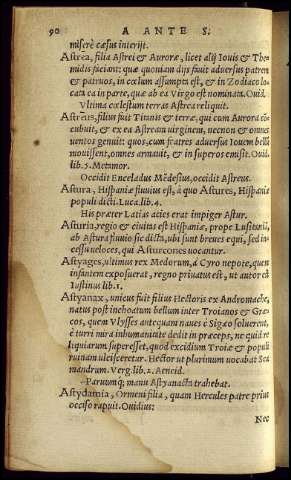 90 A ANTE S.
miserè cæsus interijt.
Astrea, filia Astrei & Auroræ, licet alij Iouis & The
midis faciant: quæ quoniam dijs fauit adversus patrem
& patruos, in cœlum assumpta est, & in Zodiaco lo
cata ea in parte, quæ ab ea Virgo est nominata. Ouid.
Vltima cælestum terras Astrea reliquit.
Astreus, filius fuit Titanis & terræ, qui cum Aurora cō
cubuit, & ex ea Astream virginem, necnon & omnes
ventos genuit: quos, cum fratres adversus Iouem bellū
mouissent, omnes armauit, & in superos emisit. Ouid.
lib. 5. Metamor.
Occidit Enceladus Mēdesius, occidit Astreus.
Astura, Hispaniæ fluuius est, à quo Astures, Hispaniæ
populi dicti. Luca. lib. 4.
His præter Latias acies erat impiger Astur.
Asturia, regio & ciuitas est Hispaniæ, prope Lusitaniā,
ab Astura fluuio sic dicta, vbi sunt breues equi, sed in-
cessu veloces, qui Asturcones vocantur.
Astyages, ultimus rex Medorum, à Cyro nepote, quem
infantem exposuerat, regno priuatus est, ut autor est
Iustinus lib. 1.
Astyanax, unicus fuit filius Hectoris ex Andromache,
natus post inchoatum bellum inter Troianos & Græ
cos, quem Vlysses antequam naues è Sigæo soluerent,
è turri mira inhumanitate dedit in præceps, ne quid re
liquiarum superesset, quod excidium Troiæ & populi
ruinam ulcisceretur. Hector ut plurimum uocabat Sca
mandrum. Verg. lib. 2. Aeneid.
-Paruumq; manu Astyanacta trahebat.
Astydamia, Ormeni filia, quam Hercules patre prius
occiso rapuit. Ouidius:
Nec